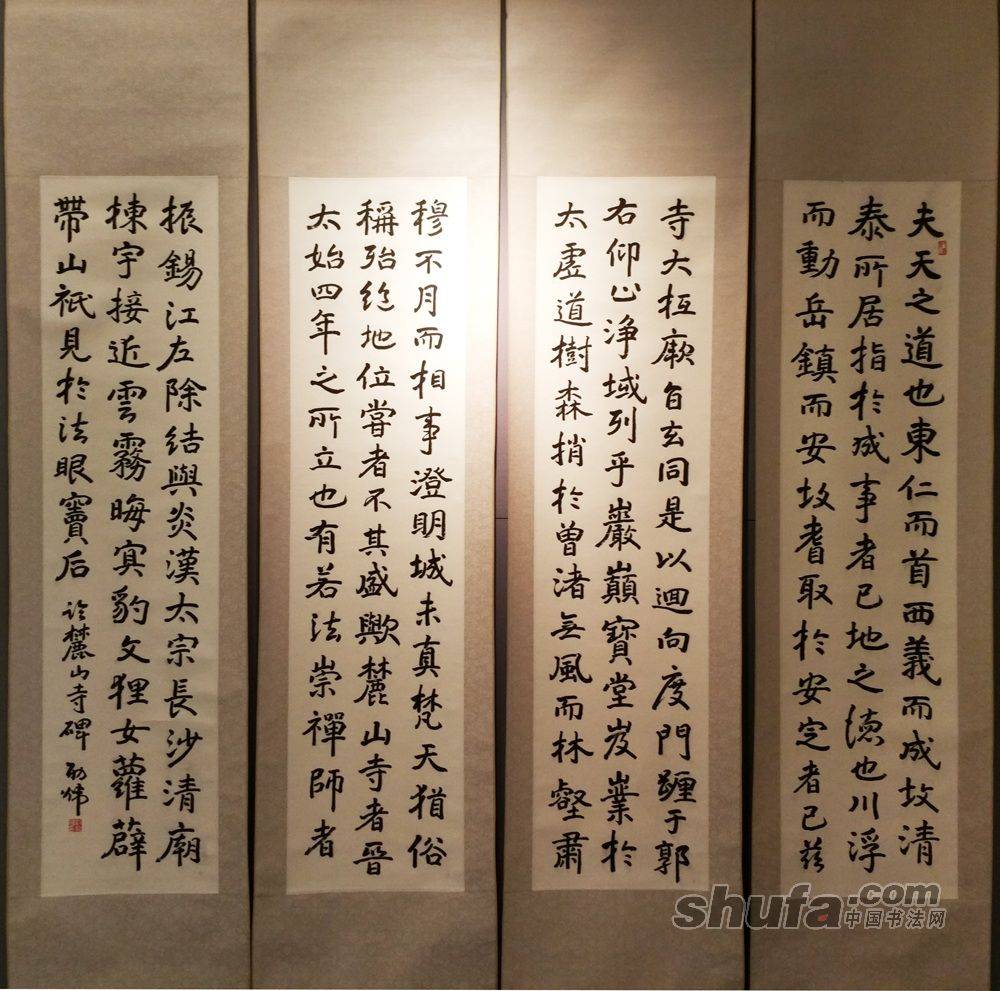 夫天之道也東仁而首西義而成故清
泰所居指於成事者已地之德也川浮
而動岳鎮而安故耆取於安定者已茲
寺大抵厥旨玄同是以迴向度門𨆏于郭
右仰止淨域列乎巖巔寶堂岌嶪於
太虛道樹森捎於曾渚無風而林壑肅
穆不月而相事澄明城未真梵天猶俗
稱殆絕地位嘗者不其盛歟麓山寺者晉
太始四年之所立也有若法崇禪師者
振錫江左除結與炎漢太宗長沙清廟
棟宇接近雲霧晦冥豹文狸女蘿薜
帶山祇見於法眼竇后
麓山寺碑
shufa.com
中国书法网